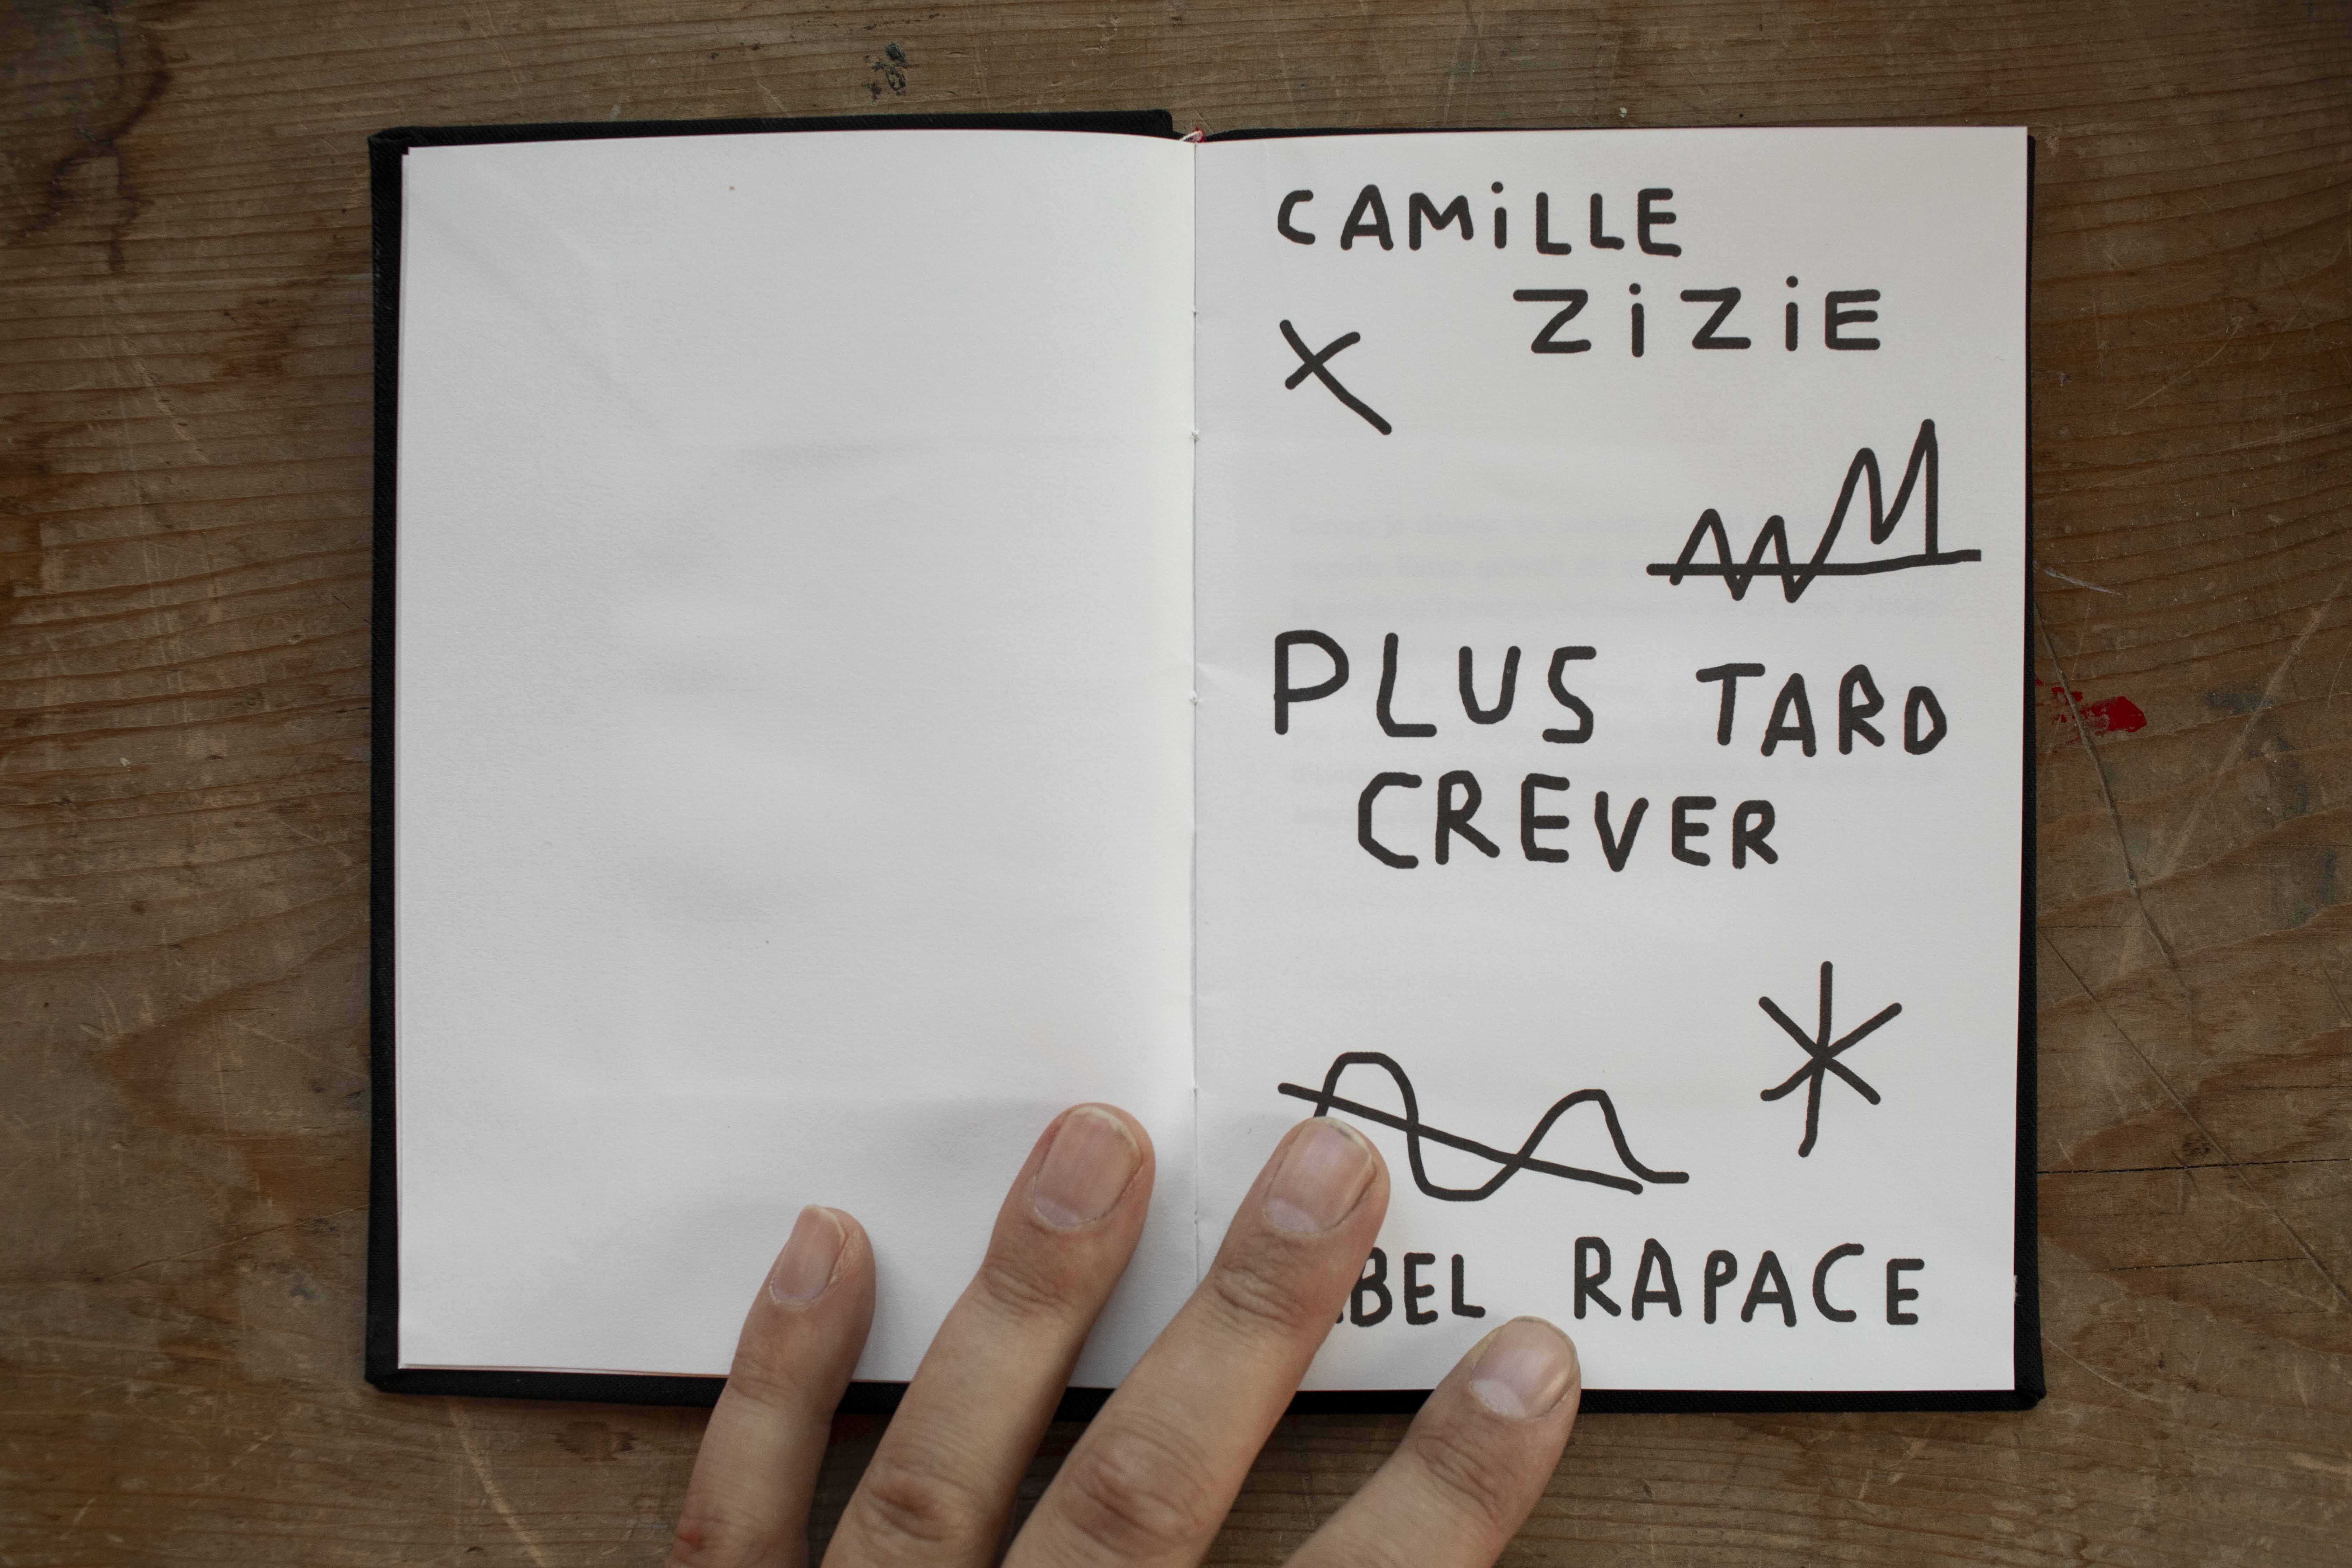 CAMiLLE
ZiZiE
PLUS TARD
CREVER
RAPACE